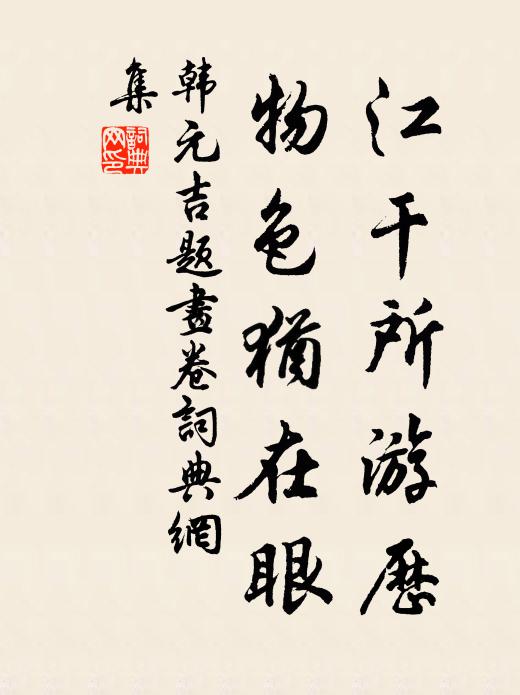 江干所游歷
物色猶在眼
韩元吉题畫卷詞典網
集
詞典
网印